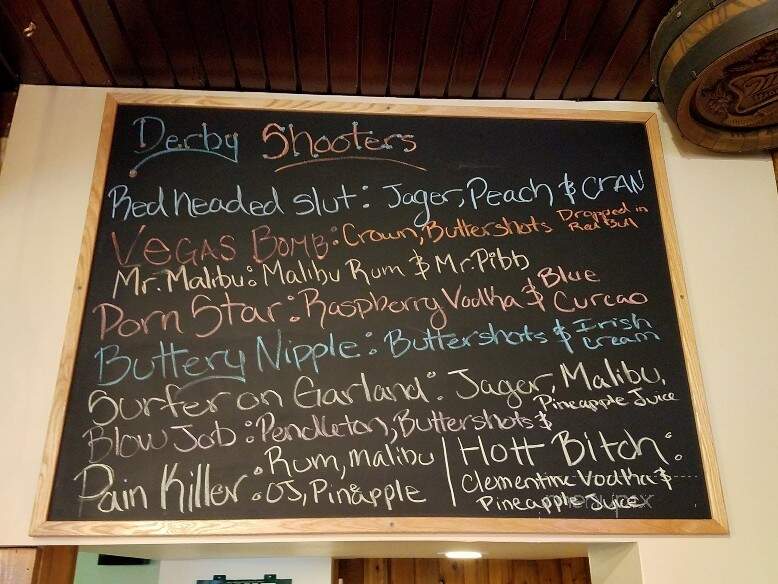 Derby Shooters
Redheaded slut: Jager, Peach & CRAN
VEGAS BOMB: Crown, Buttershots Dropped in Red Bull
Mr. Malibu: Malibu Rum & Mr. Pibb
Porn Star: Raspberry Vodka & Blue Curcao
Buttery Nipple: Buttershots & Irish cream
Surfer on Garland: Jager, Malibu, Pineapple Juice
Blow Job: Pendleton, Buttershots &
Pain Killer: Rum, Malibu OJ, Pinapple
Hott Bitch: Clementine Vodka & Pineapple Juice